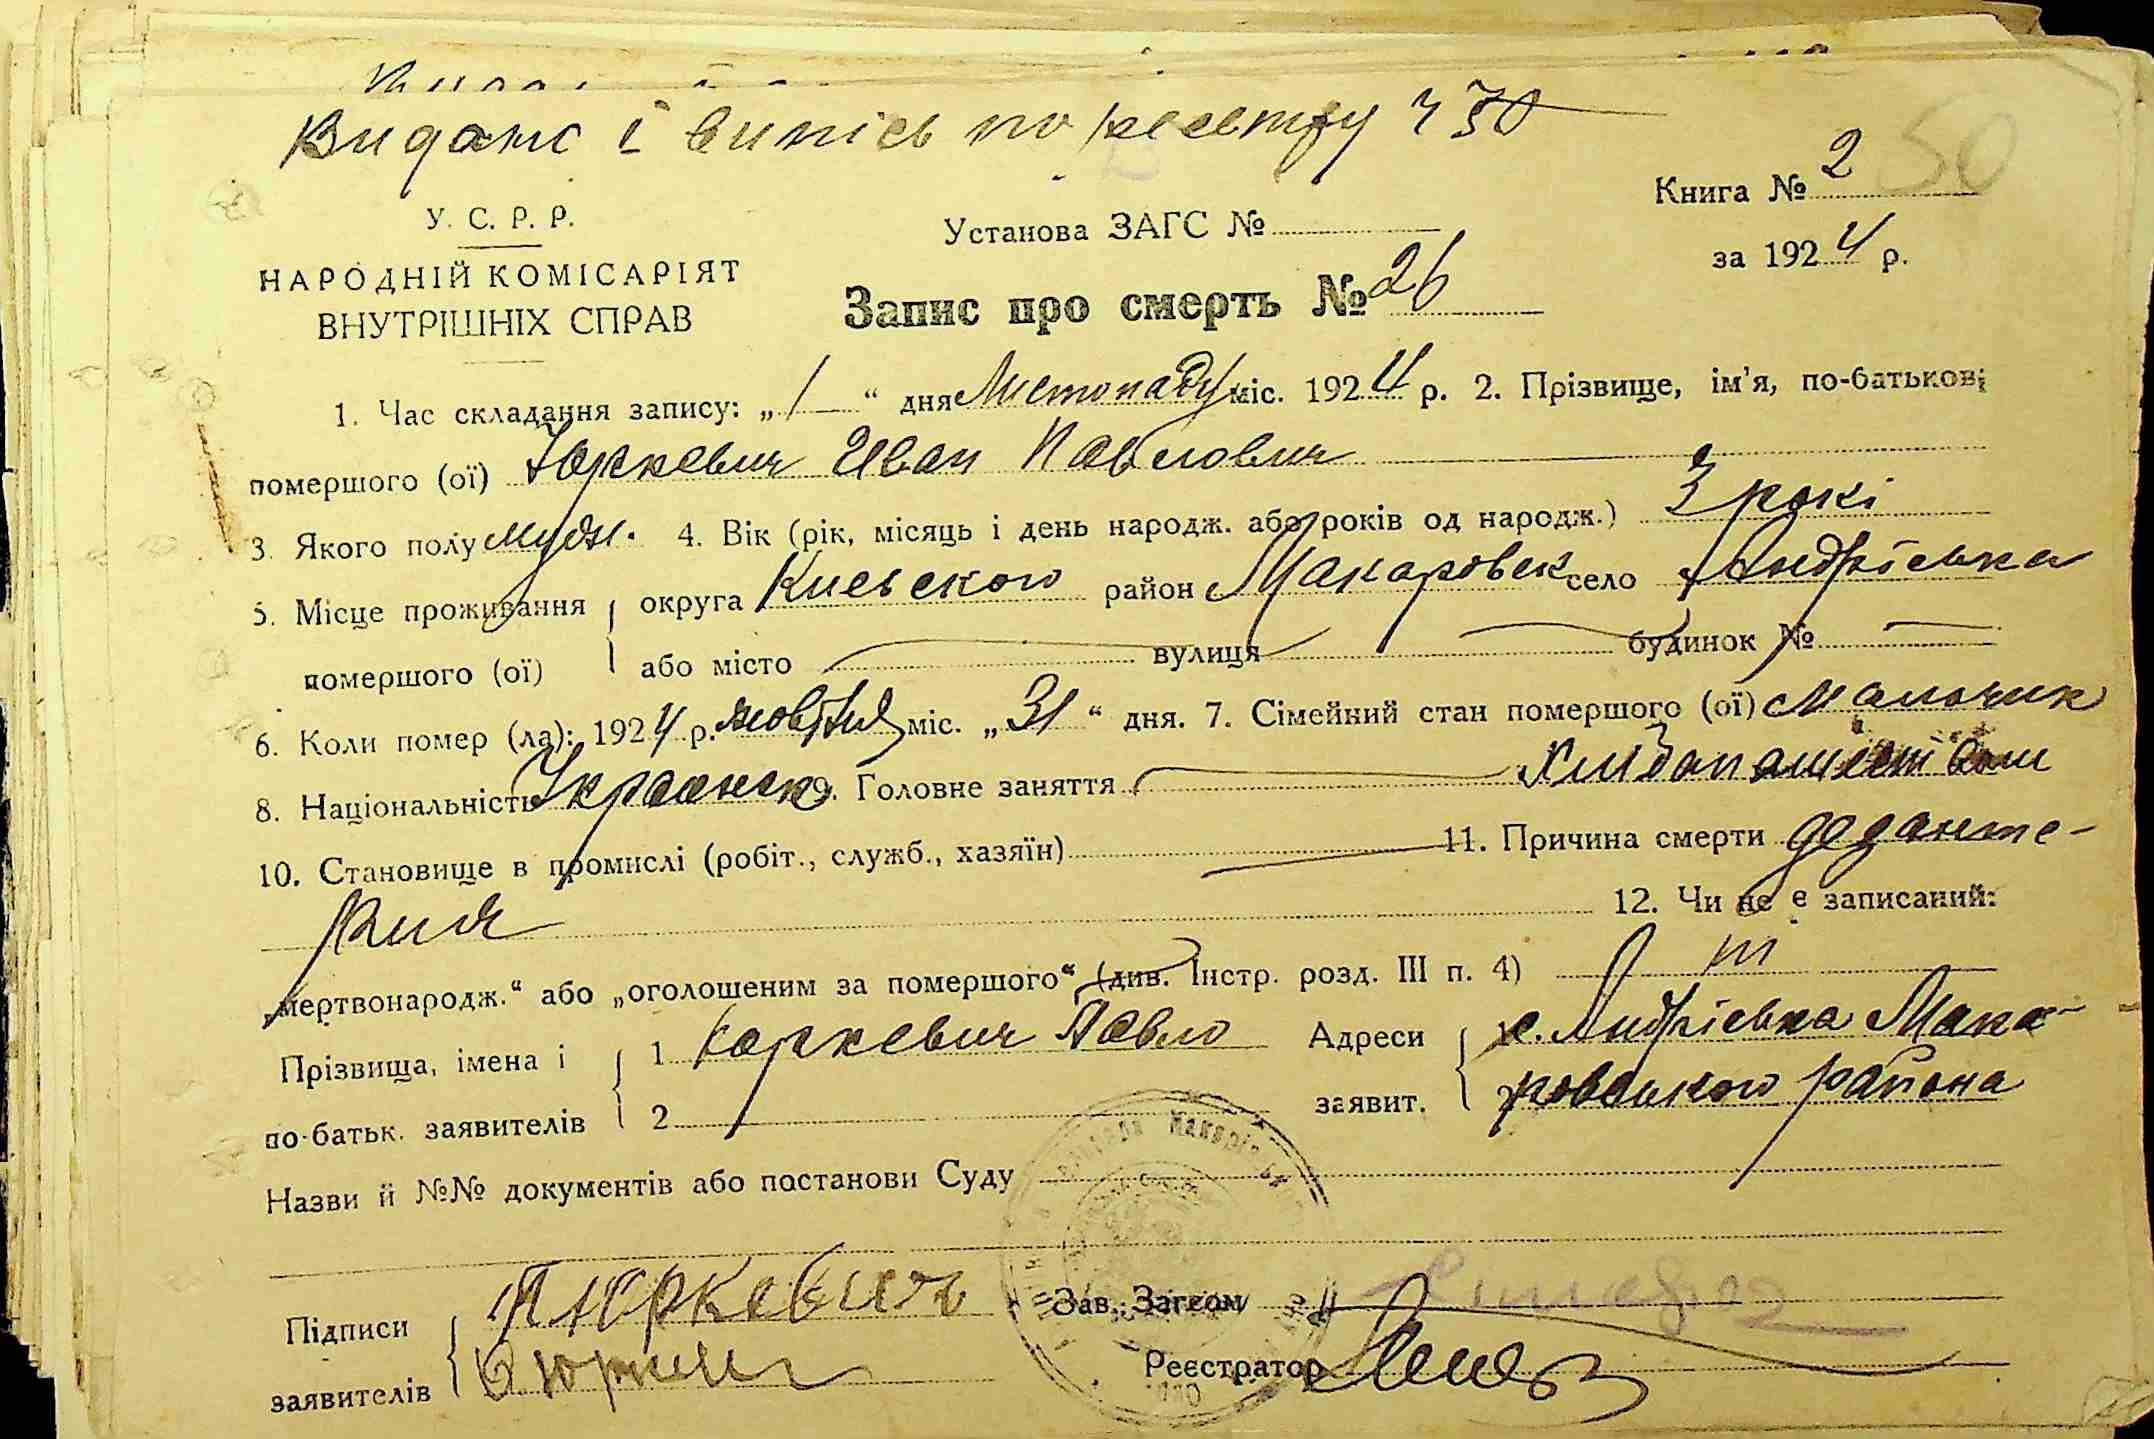 Видано і випісь по реєстру ч 30
Книга № 2
50
У. С. Р. Р.
Установа ЗАГС №
за 1924 р.
НАРОДНІЙ КОМІСАРІЯТ
ВНУТРІШНІХ СПРАВ
Запис про смерть № 26
1. Час складання запису: „ 1 “ дня Листопаду міс. 1924 р. 2. Прізвище, ім'я, по-батькові
помершого (ої) Юркевич Иван Павлович
3. Якого полу мужс. 4. Вік (рік, місяць і день народж. або років од народж.) 3 рокі
5. Місце проживання округа Киевского район Макаровск село Андрієвка
помершого (ої) або місто вулиця будинок №
6. Коли помер (ла): 1924 р. жовтня міс. „ 31 “ дня. 7. Сімейний стан помершого (ої) мальчик
8. Національність 9. Головне заняття
10. Становище в промислі (робіт., служб., хазяїн) 11. Причина смерти дезанте-
рия 12. Чи не є записаний:
„мертвонародж.“ або „оголошеним за помершого“ (див. Інстр. розд. III п. 4)
Прізвища, імена і 1 Юркевич Павло Адреси 1 с. Андрієвка Мака-
по-батьк. заявителів 2 заявит. 2 ровського района
Назви й №№ документів або постанови Суду
Підписи П Юркевич Зав. Загсом
заявителів Реєстратор